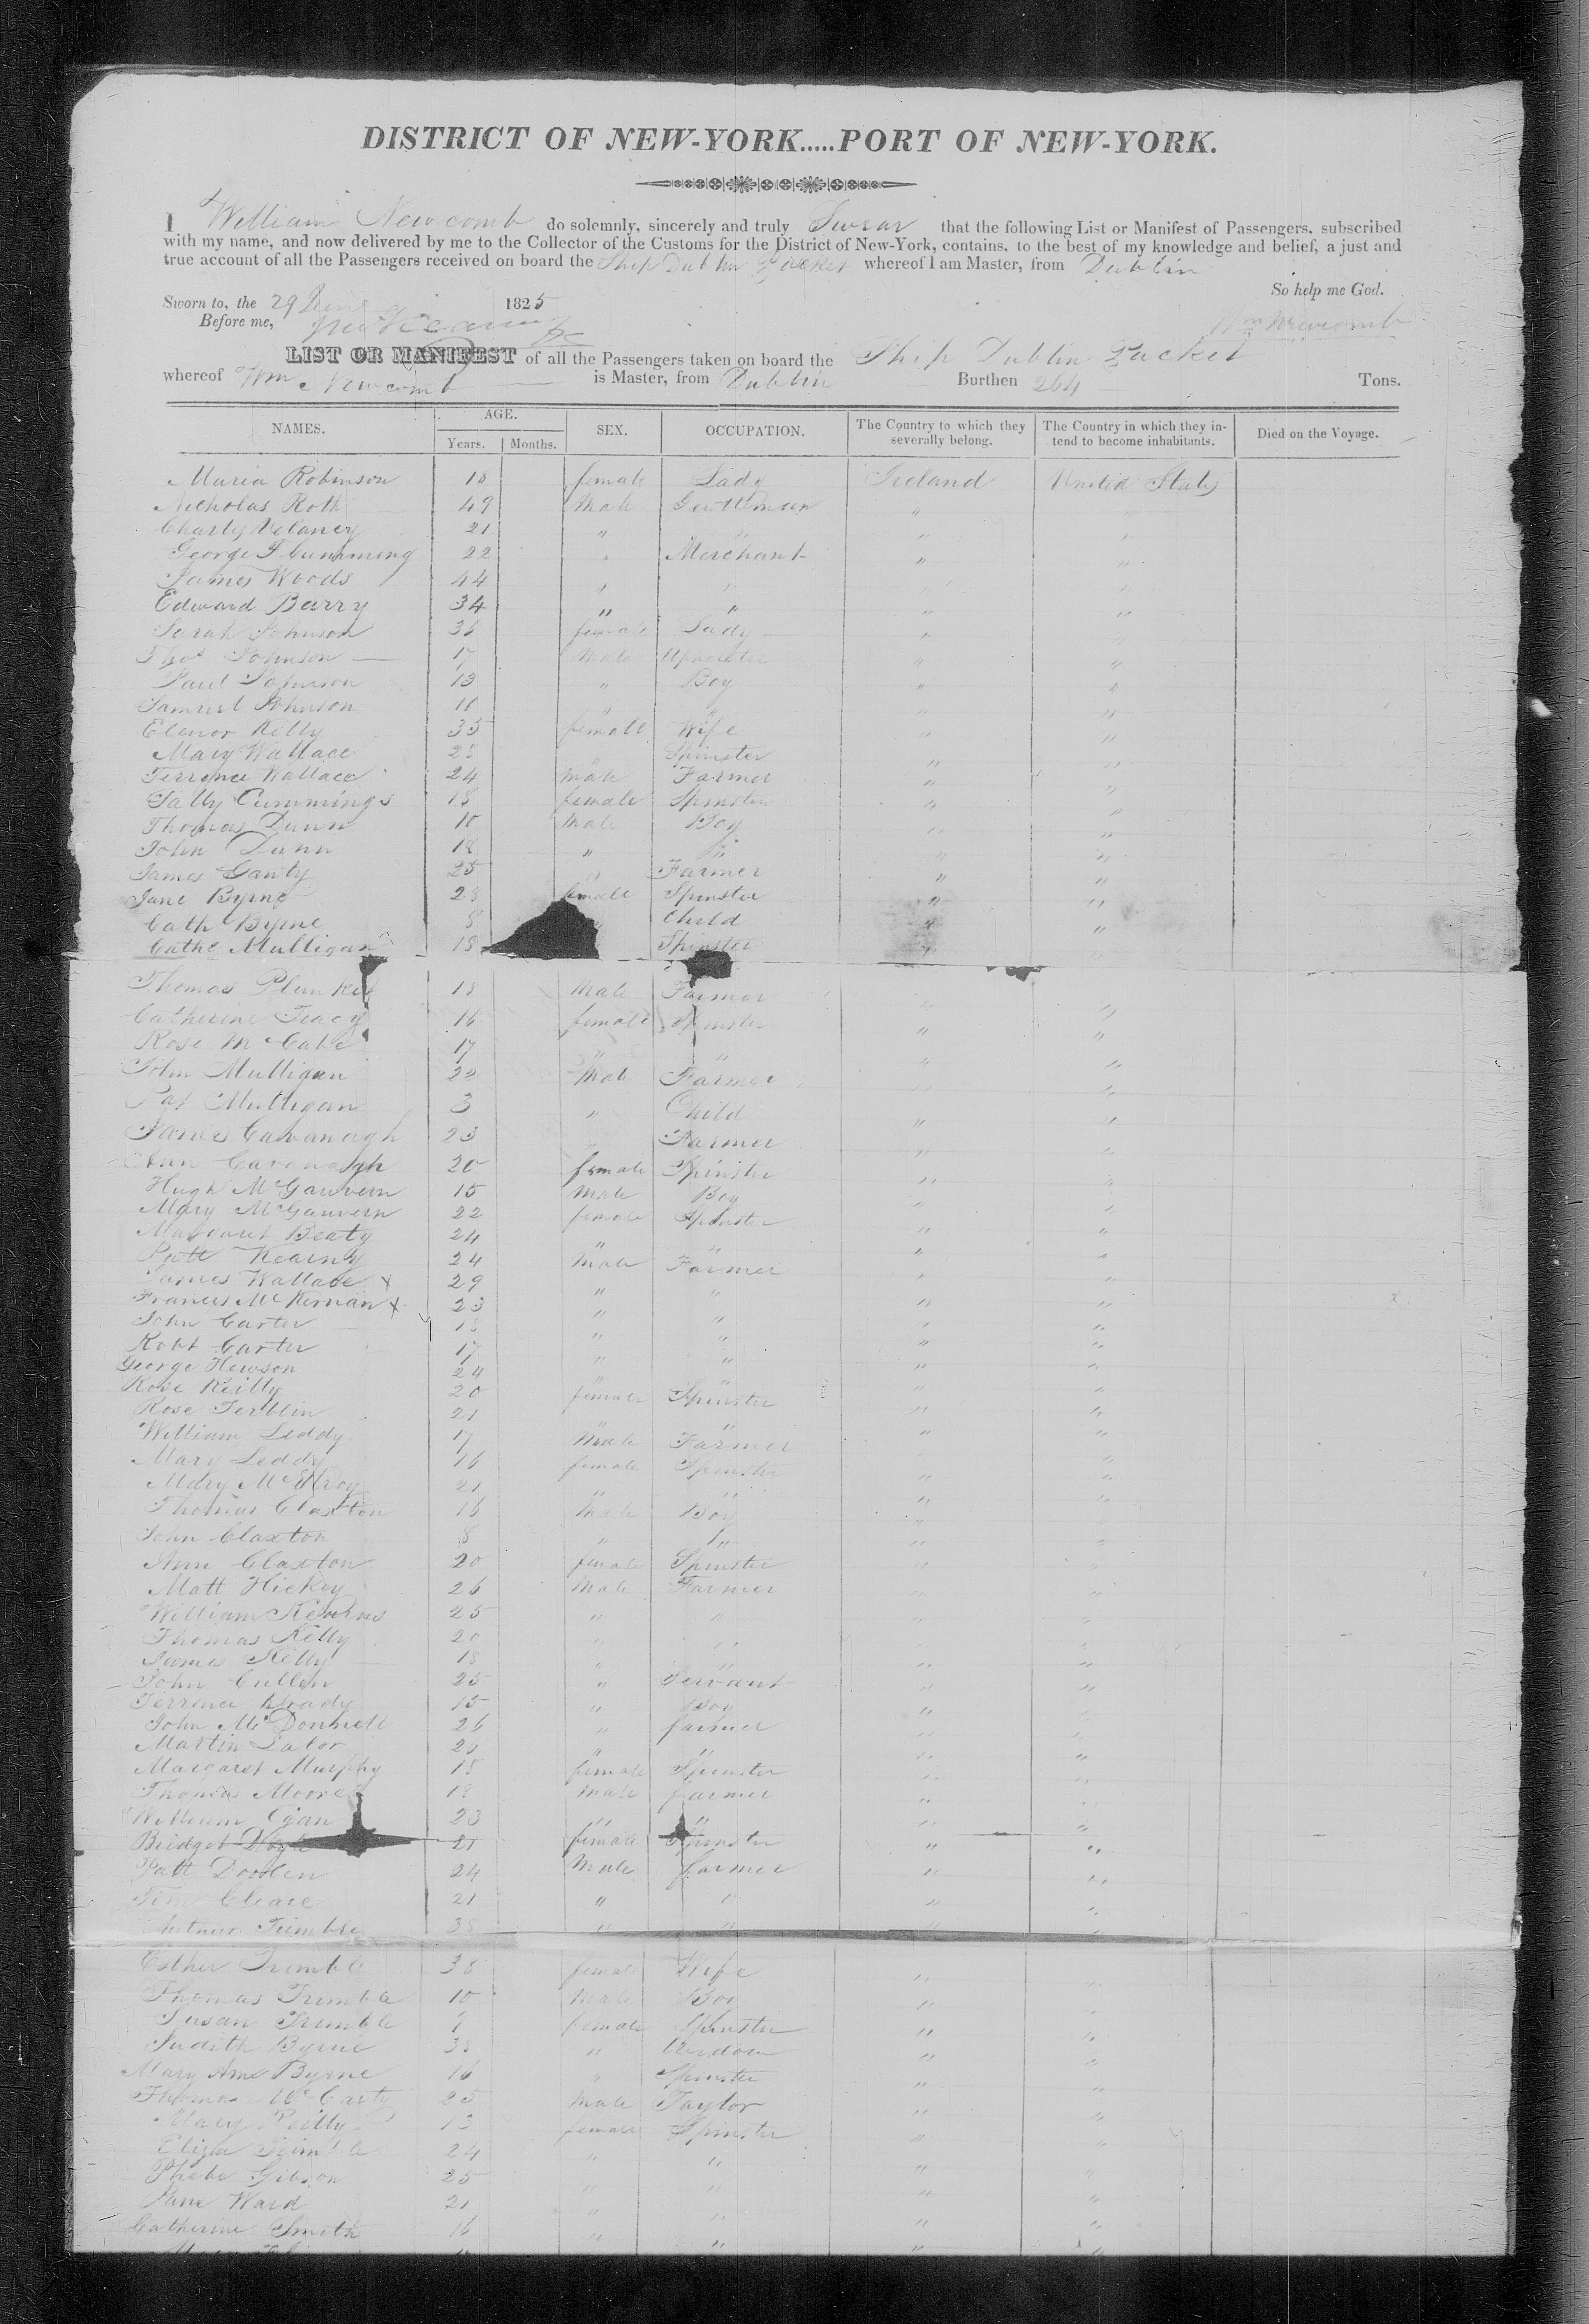 DISTRICT OF NEW-YORK.....PORT OF NEW-YORK.
I William Newcomb do solemnly, sincerely and truly Swear that the following List or Manifest of Passengers, subscribed
with my name, and now delivered by me to the Collector of the Customs for the District of New-York, contains, to the best of my knowledge and belief, a just and
true account of all the Passengers received on board the Ship Dublin Packet whereof I am Master, from Dublin
So help me God.
Sworn to, the 29 June 1825
Before me, Wm Newcomb
LIST OR MANIFEST of all the Passengers taken on board the Ship Dublin Packet
whereof Wm Newcomb is Master, from Dublin Burthen 264 Tons.
NAMES. AGE. Years. Months. SEX. OCCUPATION. The Country to which they severally belong. The Country in which they intend to become inhabitants. Died on the Voyage.
Maria Robinson 18 female Lady Ireland United States
Nicholas Roth 49 Male Gentleman " "
Charly Delaney 21 " " " "
George F Cumming 22 " Merchant " "
James Woods 44 " " " "
Edward Barry 34 " " " "
Sarah Johnson 36 female Lady " "
Thos Johnson 17 Male Upholster " "
Paul Johnson 13 " Boy " "
Samuel Johnson 11 " " " "
Elenor Kelly 35 female Wife " "
Mary Wallace 28 " Spinster " "
Terrence Wallace 24 male Farmer " "
Sally Cummings 18 female Spinster " "
Thomas Dunn 10 Male Boy " "
John Dunn 18 " " " "
James Ganty 25 " Farmer " "
Jane Byrne 28 female Spinster " "
Cath Byrne 8 " Child " "
Cathe Mulligan 18 Spinster " "
Thomas Plunket 18 Male Farmer " "
Catherine Tracy 16 female Spinster " "
Rose McCabe 17 " " " "
John Mulligan 22 Male Farmer " "
Pat Mulligan 3 " Child " "
James Cavanagh 23 " Farmer " "
Ann Cavanagh 20 female Spinster " "
Hugh McGauvern 15 Male Boy " "
Mary McGauvern 22 female Spinster " "
Margaret Beaty 24 " " " "
Patt Kearny 24 Male Farmer " "
James Wallace x 29 " " " "
Francis McKernan x 23 " " " "
John Carter 18 " " " "
Robt Carter 17 " " " "
George Hewson 24 " " " "
Rose Reilly 20 female Spinster " "
Rose 21 " " " "
William Leddy 17 Male Farmer " "
Mary Leddy 16 female Spinster " "
Mary McElroy 21 " " " "
Thomas Claxton 16 Male Boy " "
John Claxton 8 " " " "
Ann Claxton 20 female Spinster " "
Matt Hickey 26 Male Farmer " "
William Kearns 25 " " " "
Thomas Kelly 20 " " " "
James Kelly 18 " " " "
John Cullen 25 " Servant " "
Terrence Brady 15 " Boy " "
John McDonnell 26 " farmer " "
Martin Lalor 21 " " " "
Margaret Murphy 18 female Spinster " "
Thomas Moore 18 male farmer " "
William Egan 23 " " " "
Bridget Doyle 21 female Spinster " "
Patt Doolen 24 Male farmer " "
Cleare 21 " " " "
Trimble 38 " " " "
Esther Trimble 38 female Wife " "
Thomas Trimble 10 Male Boy " "
Susan Trimble 7 female Spinster " "
Judith Byrne 38 " Widow " "
Mary Ann Byrne 16 " Spinster " "
Thomas McCarty 25 Male Taylor " "
Mary Reilly 13 female Spinster " "
Eliza Trimble 24 " " " "
Phebe Gibson 25 " " " "
Jane Ward 21 " " " "
Catherine Smith 16 " " " "